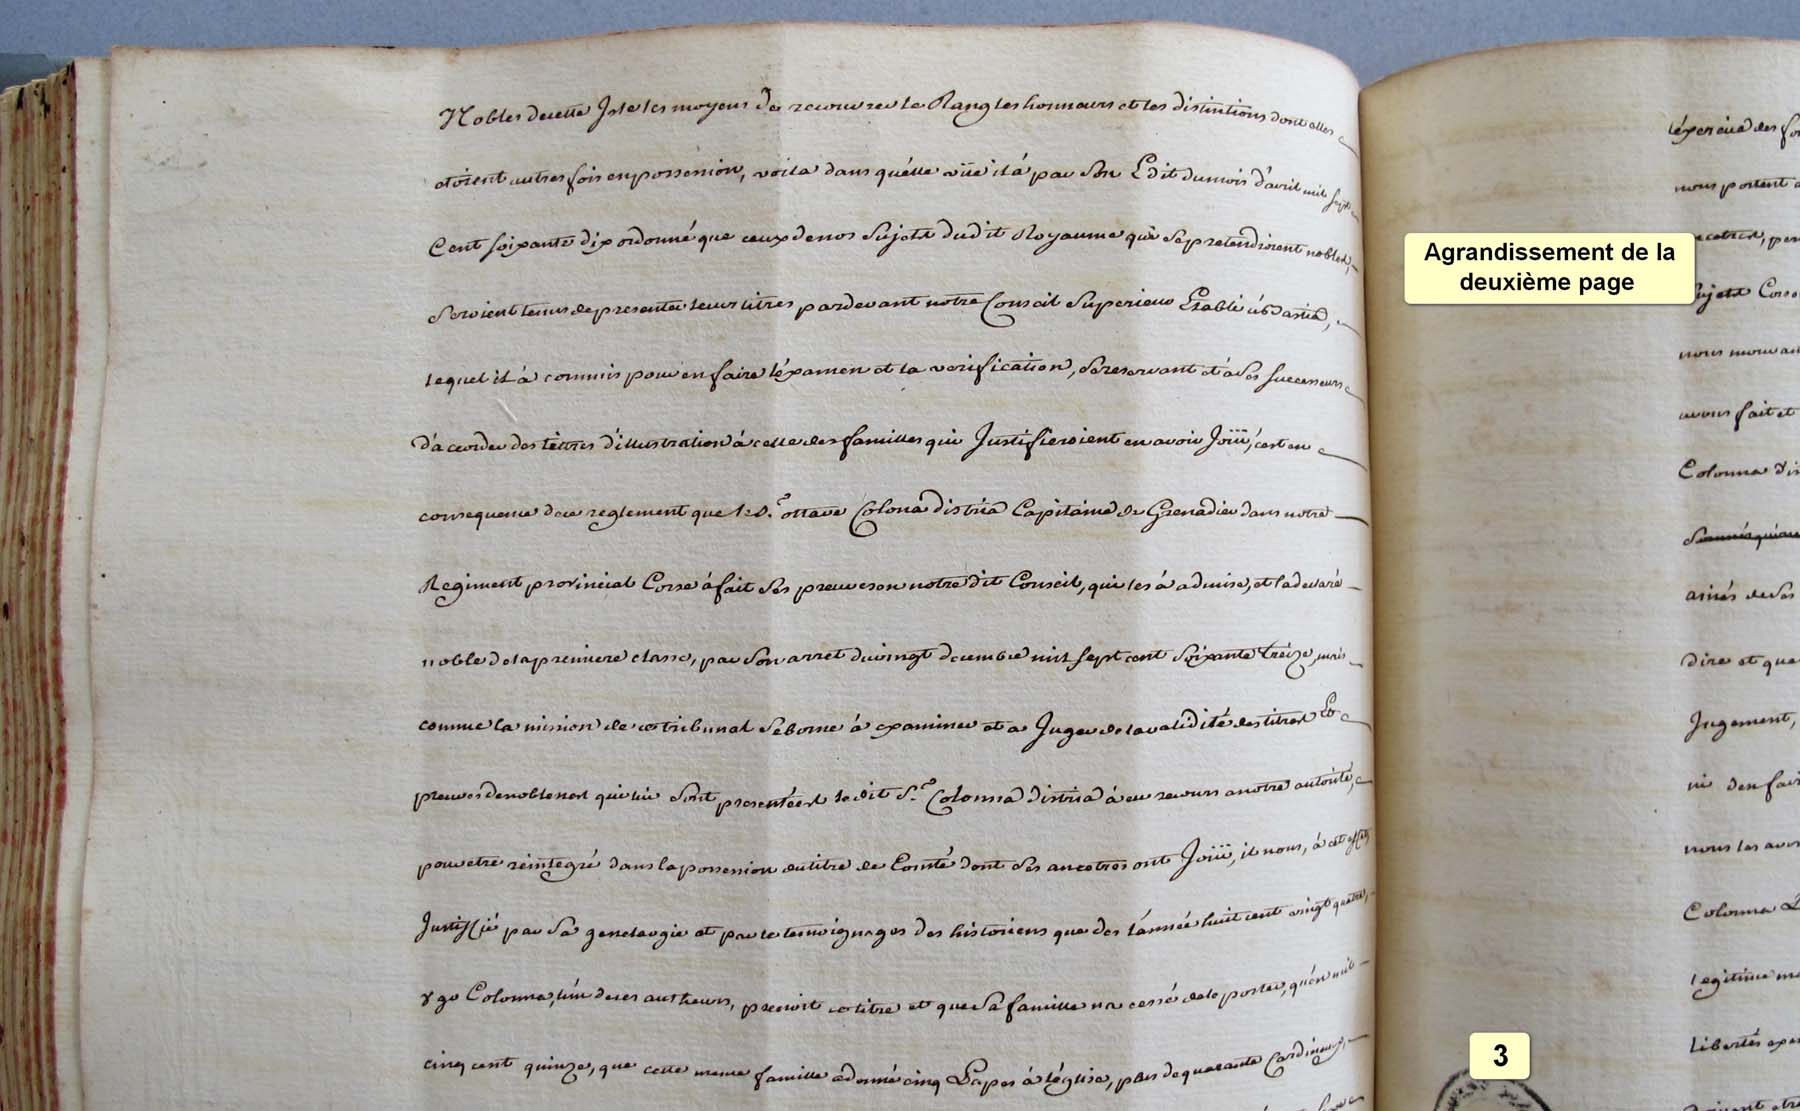 Nobles decette Isle les moyens de recouvrer le Rang les honneurs et les distintions dont elles
etoient autres fois en possession, voila dans quélle vüe il á par Son Edit du mois d'avril mil sept
Cent soixante dix ordonné que ceux de nos Sujets dudit Royaume qui Se pretendroient nobles,
Seroient tenus de presenter leurs titres pardevant notre Conseil Superieur Etabli á Bastia,
lequel il á commis pour en faire l'éxamen et la verification, Se reservant et á Ses successeurs
d'acorder des lettres d'illustration á celle des familles qui Justifieroient en avoir Joüi, c'est en
consequence de ce reglement que le S.r ottave Colona distria Capitaine de Grenadier dans notre
Regiment provincial Corse á fait Ses preuves en notre dit Conseil, qui les á admise, et la declaré
noble de la premiere classe, par Son arret du vingt decembre mil sept cent Soixante treize, mais
comme la mission de ce tribunal Se borne á examiner et a Juger de la validité des titres Et
preuves de noblesse qui lui Sont presentées le dit S.r Colonna distria á eu recours a notre autorité,
pour etre reintegré dans la possession du titre de Comte dont Ses ancetres ont Joüi, il nous, á cet effet
Justifié par Sa genealogie et par le temoignages des historiens que des l'année huit cent vingt quatre,
Ugo Colonna, l'un de ces autheurs, prenoit ce titre et que Sa famille na cessé de le porter, qu'en mil
cinq cent quinze, que cette meme famille a donné cinq Papes á l'église, plus de quarante Cardinaux,
l'éxercice des
nous portent
ancetres,
Sujets
nous
avons fait et
Colonna
ainés de Ses
dire et que
Jugement,
ni den
nous les
Colonna
legitime
Libertés
Agrandissement de la
deuxième page
3